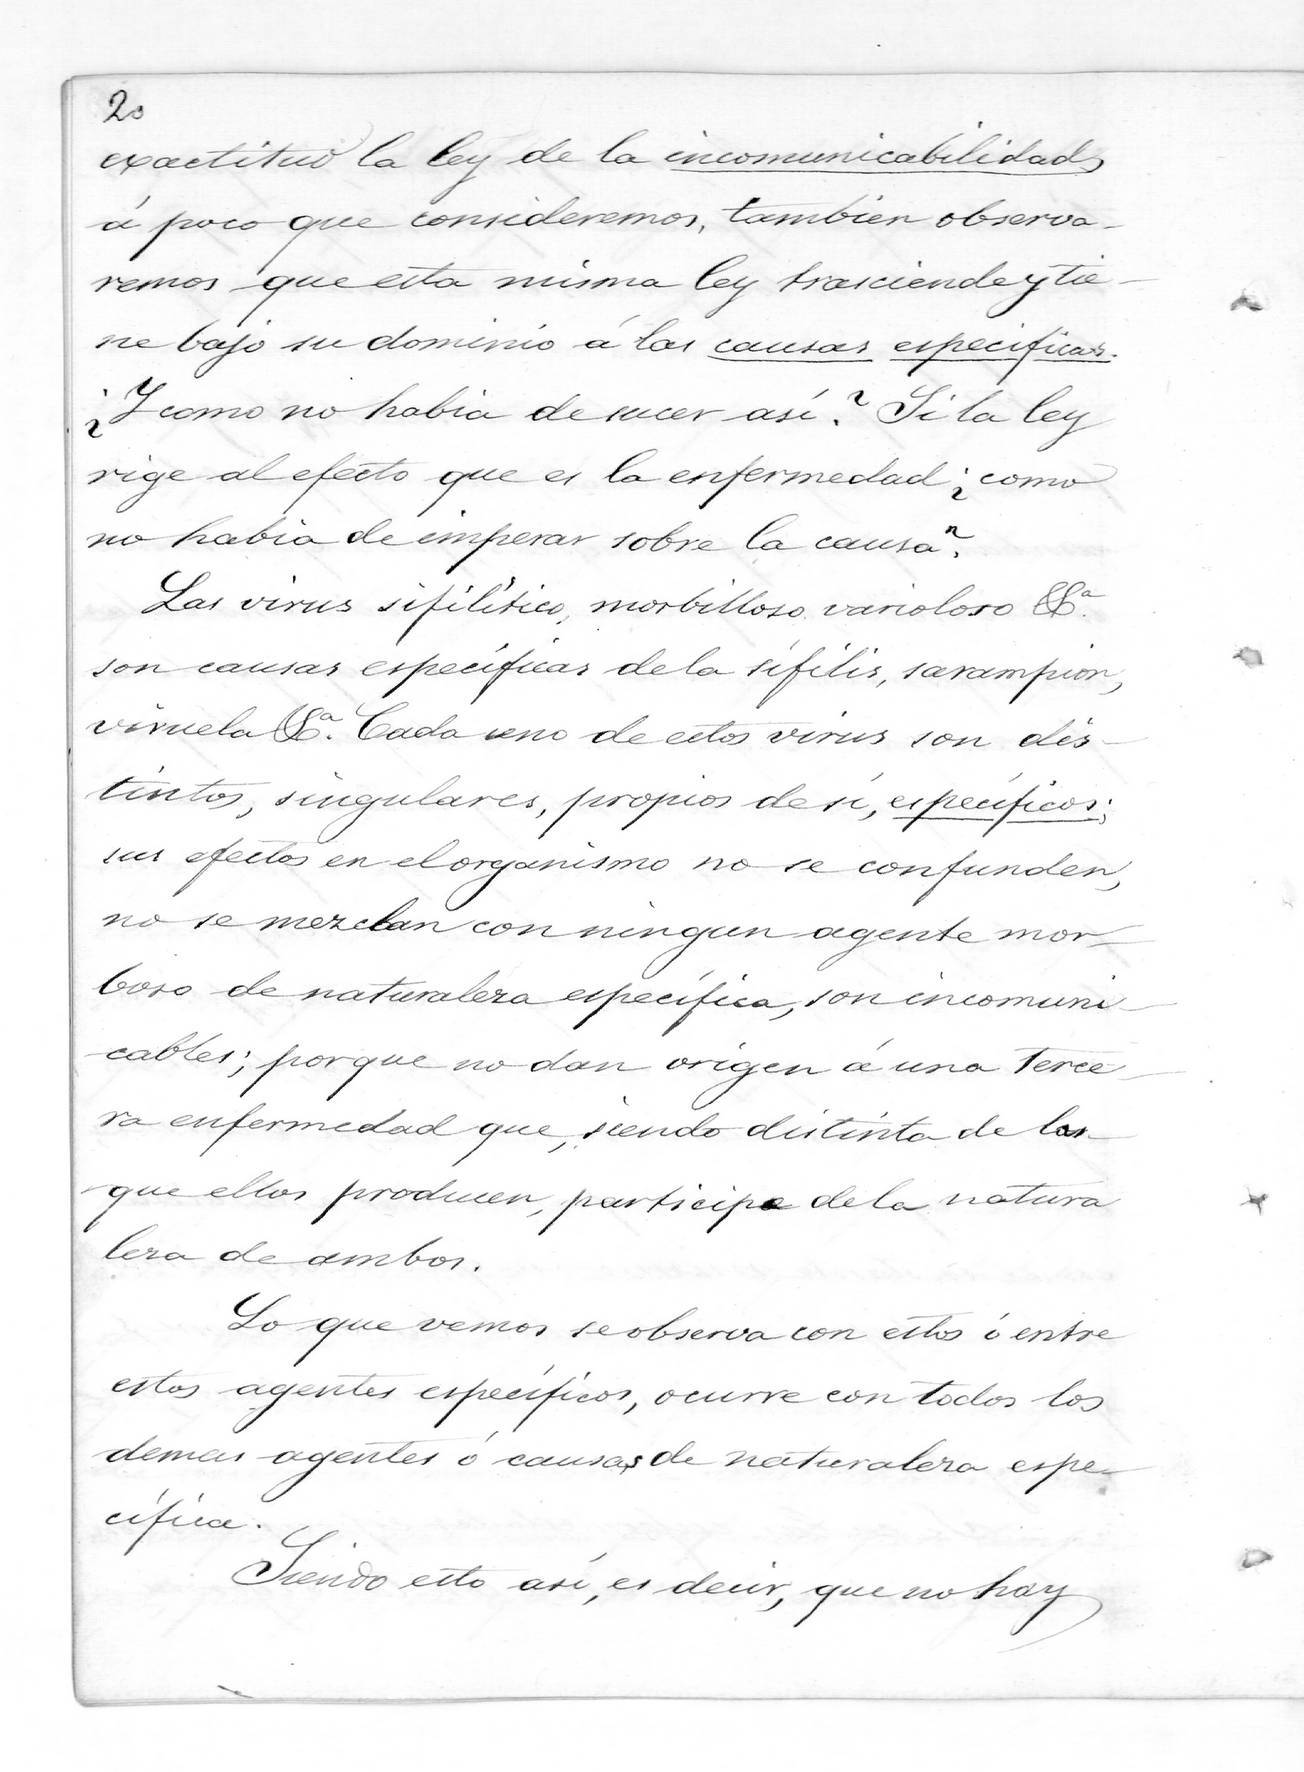 20
exactitud la ley de la incomunicabilidad,
á poco que consideremos, tambien observa-
remos que esta misma ley trasciende y tie-
ne bajo su dominio á las causas especificas.
¿Y como no habia de sucer así? Si la ley
rige al efecto que es la enfermedad ¿como
no habia de imperar sobre la causa?
Los virus sifilítico, morbilloso varioloso &ª.
son causas específicas de la sífilis, sarampion,
viruela &ª. Cada uno de estos virus son dis-
tintos, singulares, propios de sí, específicos;
sus efectos en el organismo no se confunden,
no se mezclan con ningun agente mor-
boso de naturaleza específica, son incomuni-
cables; porque no dan origen á una terce-
ra enfermedad que, siendo distinta de las
que ellos producen, participe de la natura
leza de ambos.
Lo que vemos se observa con estos ó entre
estos agentes específicos, ocurre con todos los
demas agentes ó causas de naturaleza espe-
cífica.
Siendo esto así, es decir, que no hay